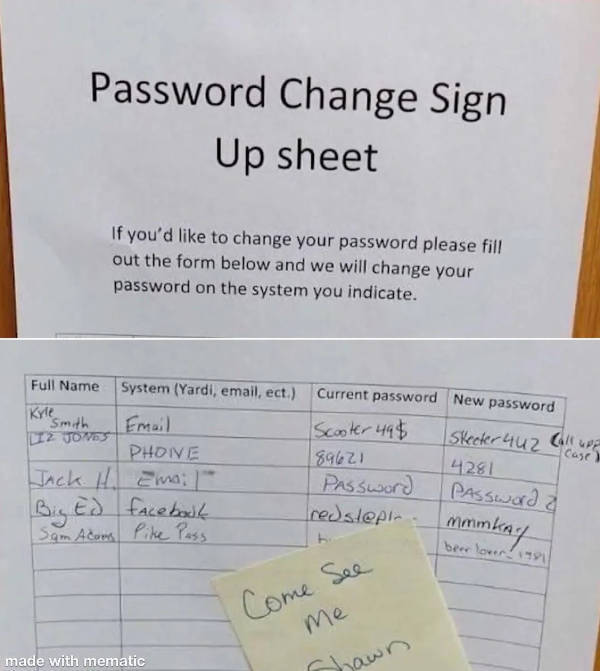 Password Change Sign
Up sheet
If you'd like to change your password please fill
out the form below and we will change your
password on the system you indicate.
Full Name System (Yardi, email, ect.) Current password New password
Kyle Smith Email Scooter49$ Skeeter4u2 (all upp case)
LIZ JONES PHONE 89621 4281
Jack H. Email PASSword PASSword 2
Big Ed facebook mmmkay
Sam Adams Pike Pass beer lover_1981
Come See
Me
Shawn
made with mematic